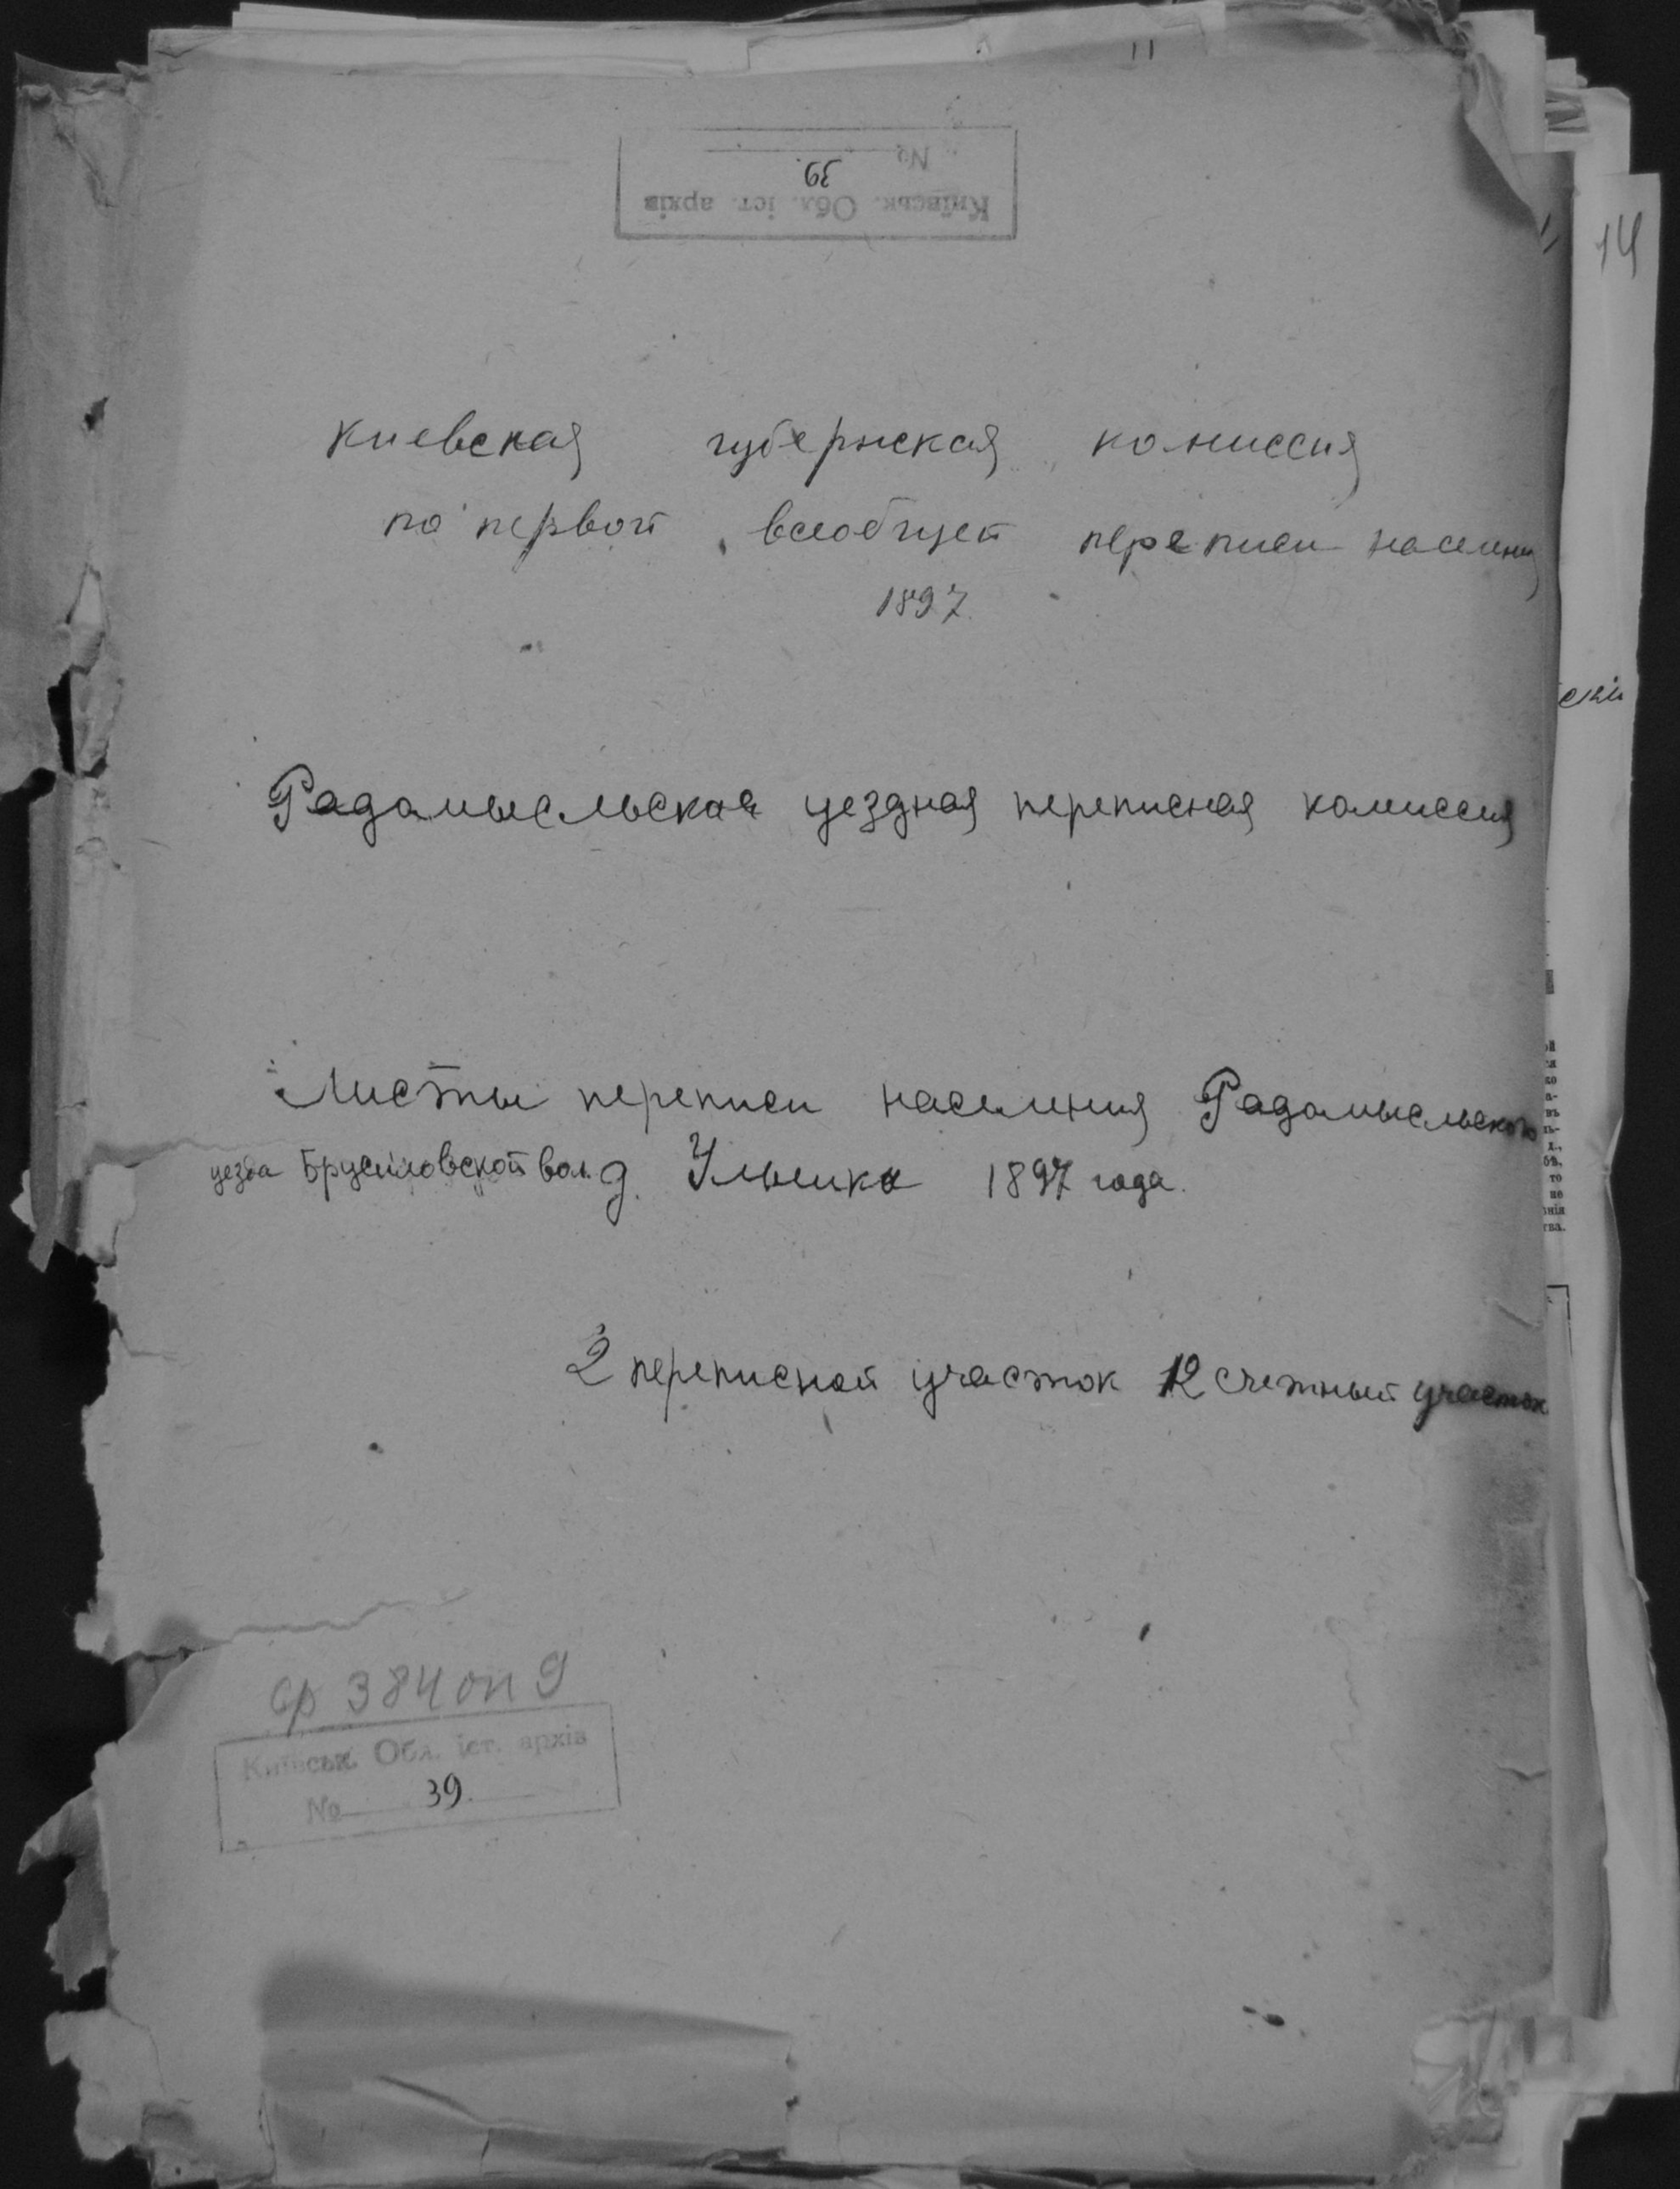 Київськ. Обл. іст. архів
№ 39.
14
Киевская губернская комиссия
по первой всеобщей переписи населения
1897.
Радомысльская уездная переписная комиссия
Листы переписи населения Радомысльского
уезда Брусиловской вол. д. Ульшка 1897 года.
2 переписной участок 12 счетный участок
ф 384 оп 9
Київськ. Обл. іст. архів
№ 39.